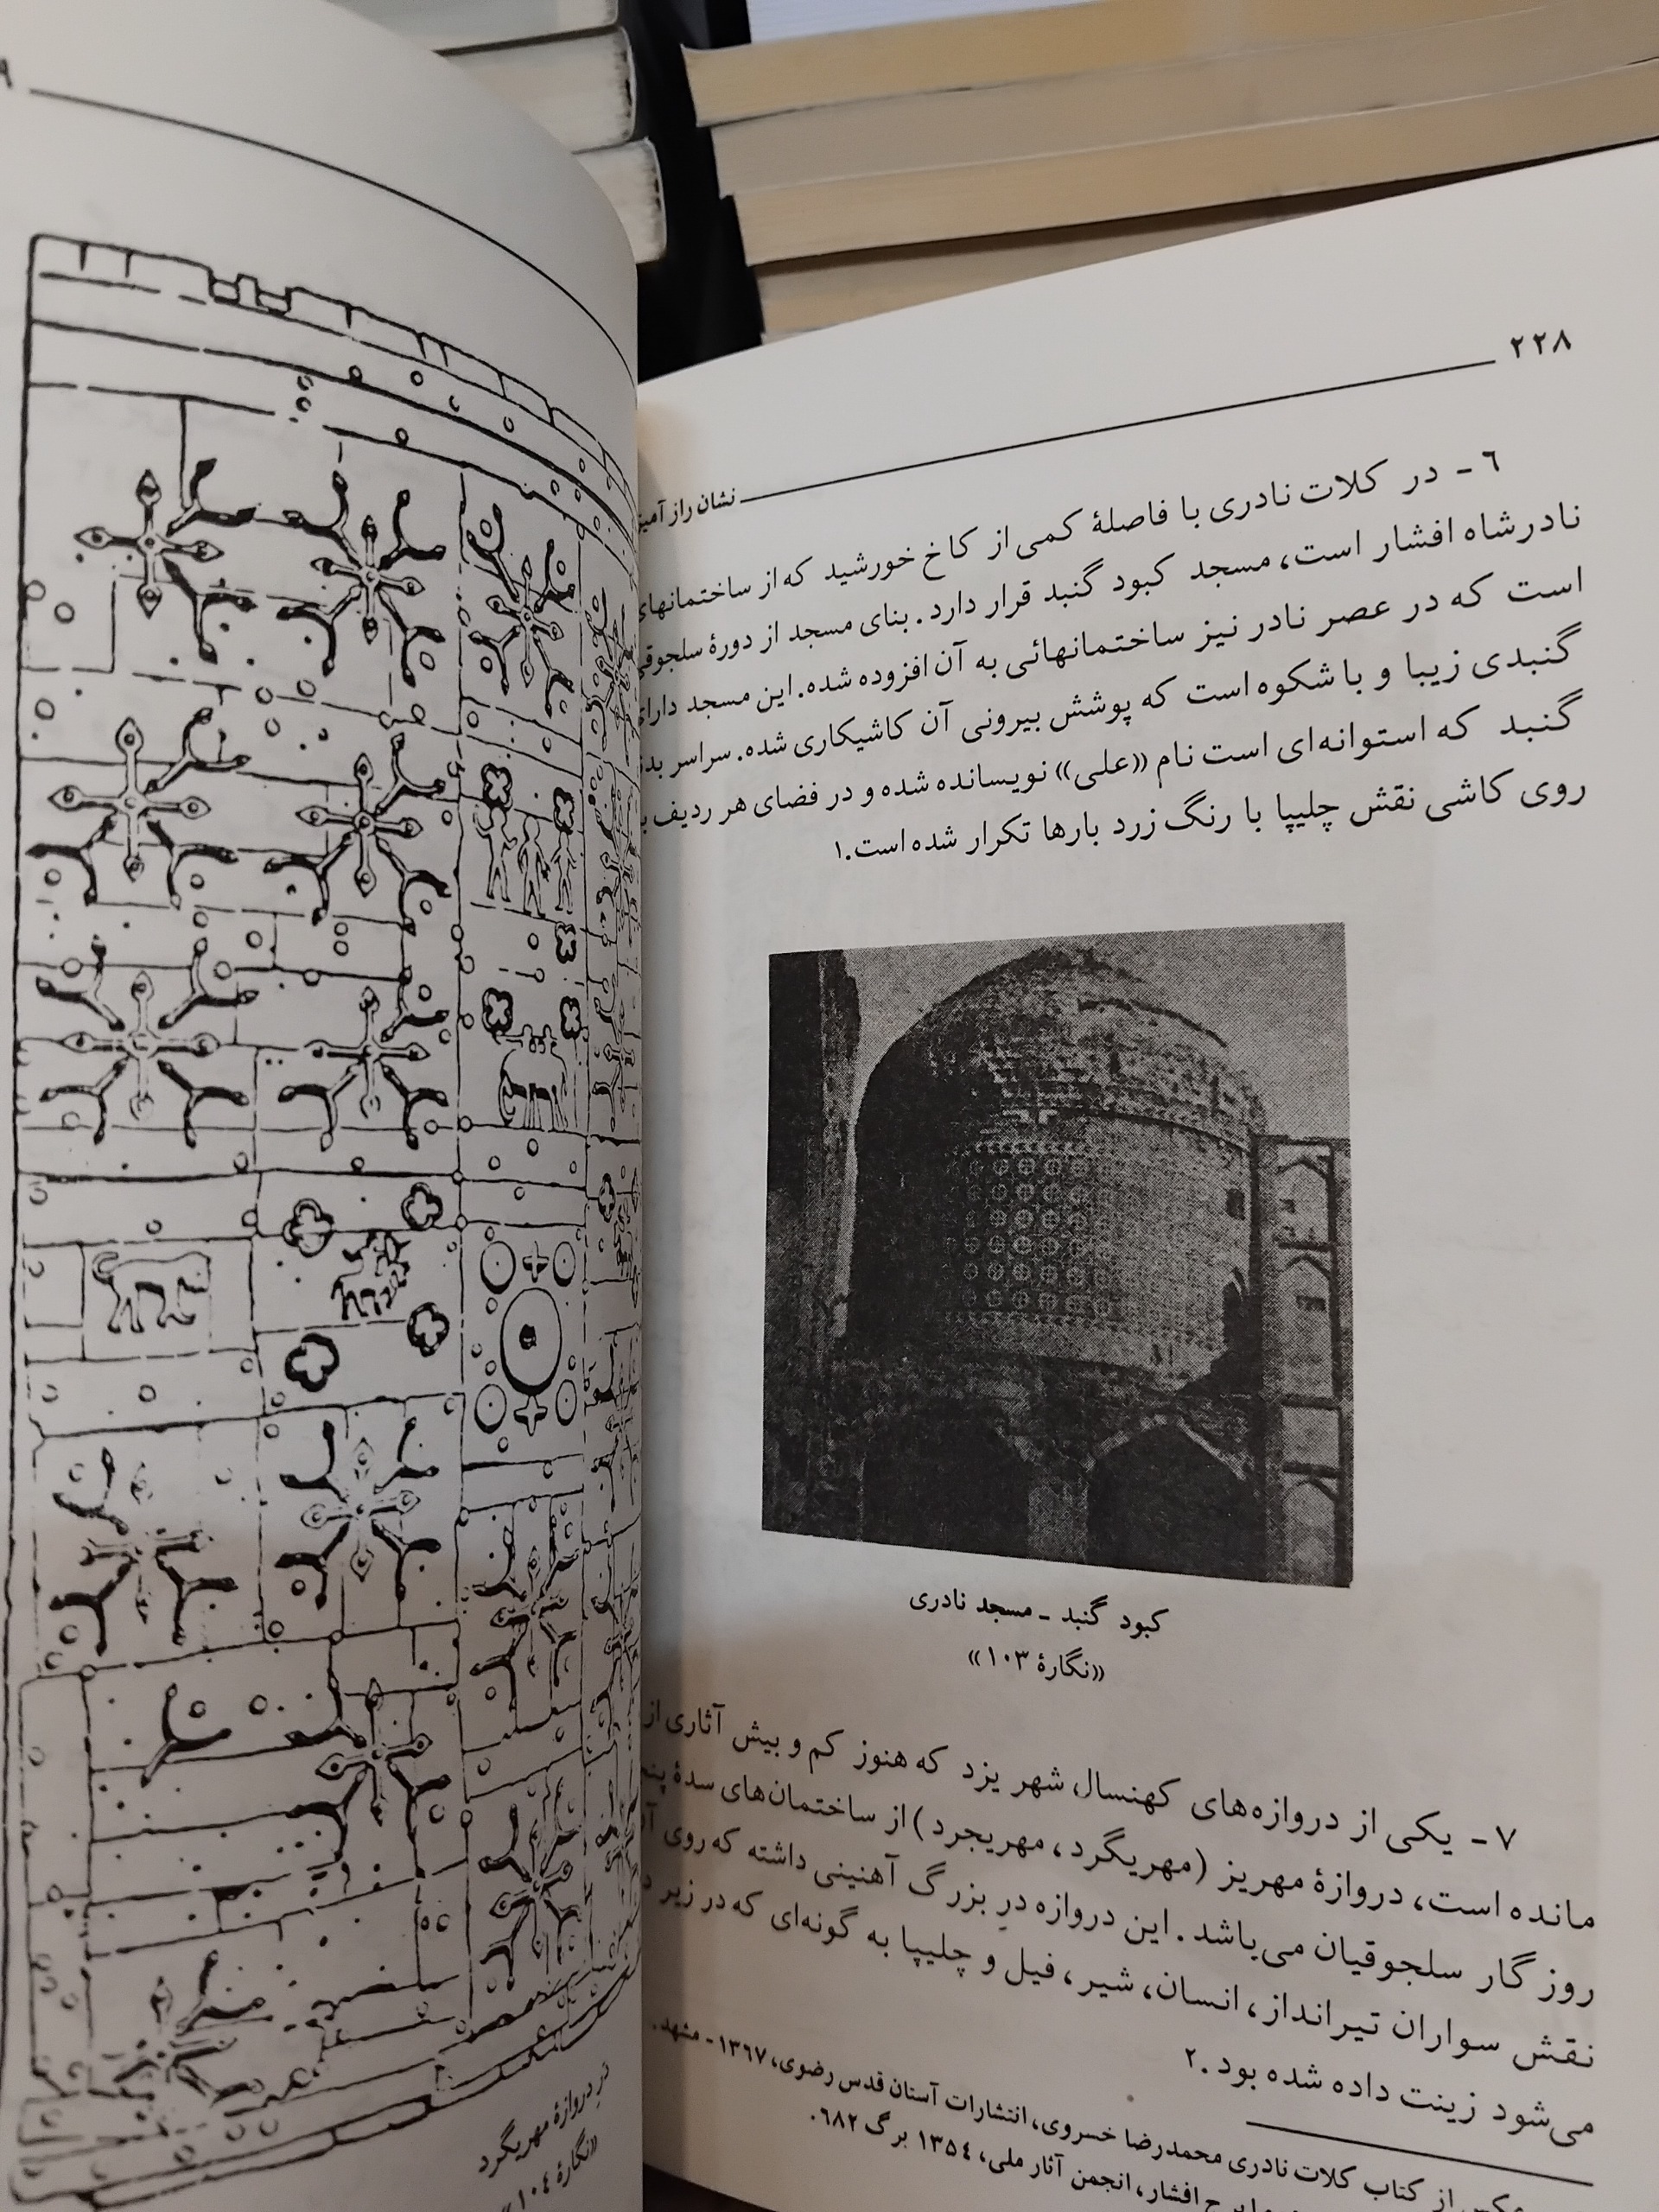 ۲۲۸
نشان راز آمیز
٦ - در کلات نادری با فاصلهٔ کمی از کاخ خورشید که از ساختمانهای
نادرشاه افشار است، مسجد کبود گنبد قرار دارد. بنای مسجد از دورهٔ سلجوقی
است که در عصر نادر نیز ساختمانهائی به آن افزوده شده. این مسجد دارای
گنبدی زیبا و با شکوه است که پوشش بیرونی آن کاشیکاری شده. سراسر
گنبد که استوانه‌ای است نام «علی» نویسانده شده و در فضای هر ردیف
روی کاشی نقش چلیپا با رنگ زرد بارها تکرار شده است.۱
کبود گنبد - مسجد نادری
«نگارهٔ ۱۰۳»
۷ - یکی از دروازه‌های کهنسال شهر یزد که هنوز کم و بیش آثاری از
مانده است، دروازهٔ مهریز (مهریگرد، مهریجرد) از ساختمان‌های سدهٔ
روزگار سلجوقیان می‌باشد. این دروازه درِ بزرگ آهنینی داشته که روی
نقش سواران تیرانداز، انسان، شیر، فیل و چلیپا به گونه‌ای که در زیر
می‌شود زینت داده شده بود.۲
عکس از کتاب کلات نادری محمدرضا خسروی، انتشارات آستان قدس رضوی، ۱۳٦۷ - مشهد.
ایرج افشار، انجمن آثار ملی، ۱۳٥٤ برگ ٦۸۲.
۹
درِ دروازهٔ مهریگرد
«نگارهٔ ۱۰٤»